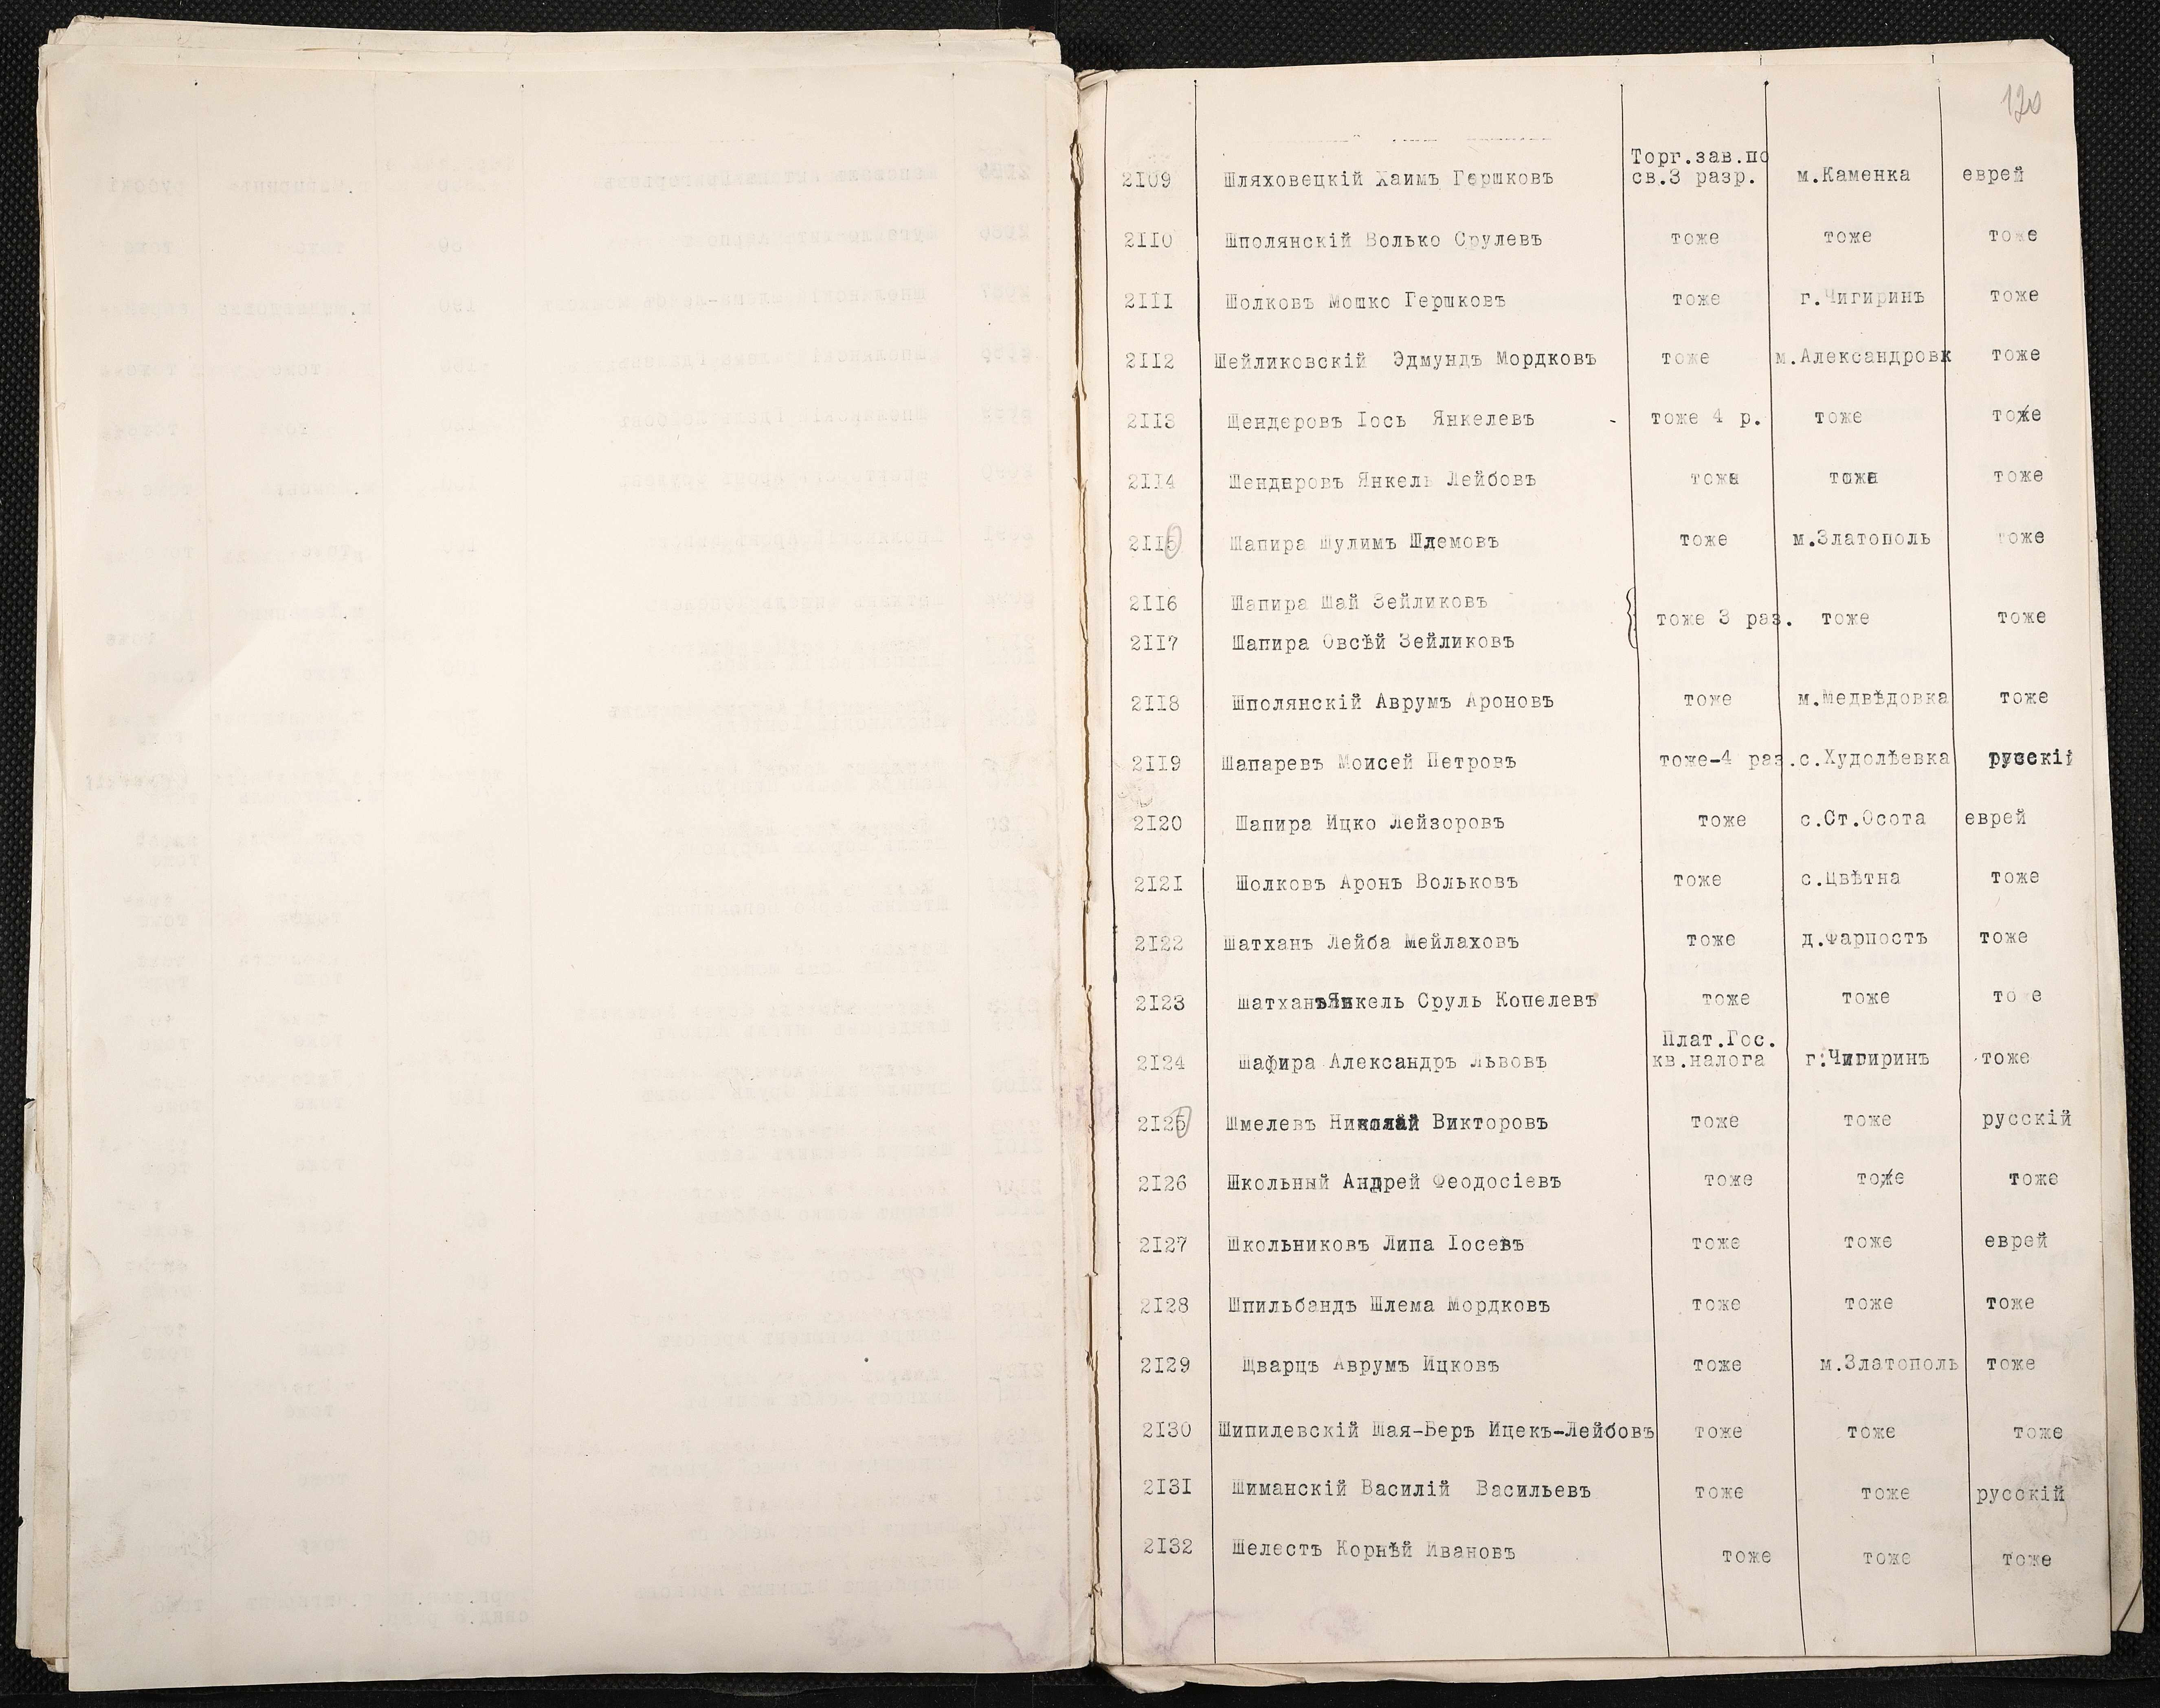 120
Торг.зав.по
2109 Шляховецкій Хаимъ Гершковъ св.3 разр. м.Каменка еврей
2110 Шполянскій Волько Срулевъ тоже тоже тоже
2111 Шолковъ Мошко Гершковъ тоже г.Чигиринъ тоже
2112 Шейликовскій Эдмундъ Мордковъ тоже м.Александровк тоже
2113 Щендеровъ Іось Янкелевъ - тоже 4 р. тоже тоже
2114 Шендеровъ Янкель Лейбовъ тоже тоже тоже
2115 Шапира Шулимъ Шлемовъ тоже м.Златополь тоже
2116 Шапира Шай Зейликовъ
тоже 3 раз. тоже тоже
2117 Шапира Овсѣй Зейликовъ
2118 Шполянскій Аврумъ Ароновъ тоже м.Медвѣдовка тоже
2119 Шапаревъ Моисей Петровъ тоже-4 раз. с.Худолѣевка русскій
2120 Шапира Ицко Лейзоровъ тоже с.Ст.Осота еврей
2121 Шолковъ Аронъ Вольковъ тоже с.Цвѣтна тоже
2122 Шатханъ Лейба Мейлаховъ тоже д.Фарпостъ тоже
2123 ШатханъЯнкель Сруль Копелевъ тоже тоже тоже
Плат.Гос.
2124 Шафира Александръ Львовъ кв.налога г.Чигиринъ тоже
2125 Шмелевъ Николай Викторовъ тоже тоже русскій
2126 Школьный Андрей Феодосіевъ тоже тоже тоже
2127 Школьниковъ Липа Іосевъ тоже тоже еврей
2128 Шпильбандъ Шлема Мордковъ тоже тоже тоже
2129 Щварцъ Аврумъ Ицковъ тоже м.Златополь тоже
2130 Шипилевскій Шая-Беръ Ицекъ-Лейбовъ тоже тоже тоже
2131 Шиманскій Василій Васильевъ тоже тоже русскій
2132 Шелестъ Корнѣй Ивановъ тоже тоже тоже